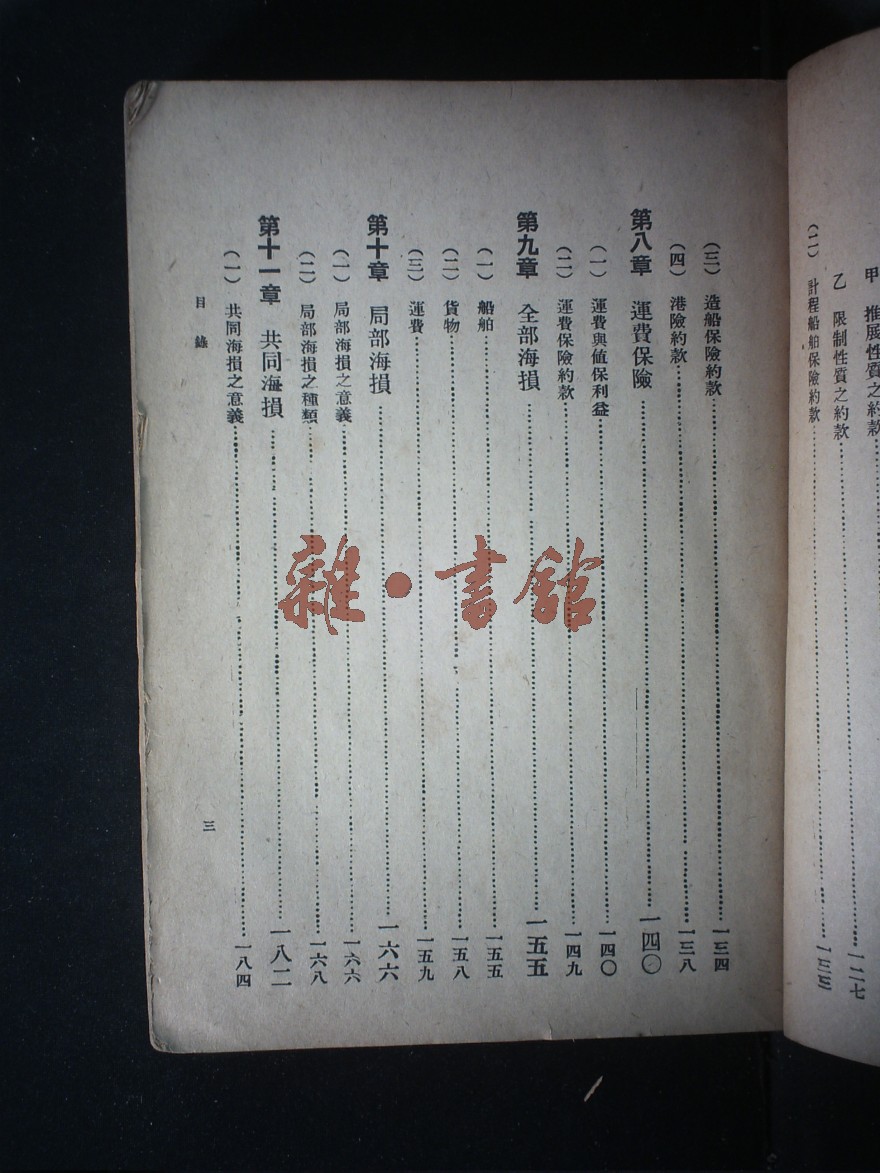 甲 推展性質之約款
乙 限制性質之約款……一二七
（二） 計程船舶保險約款……
（三） 造船保險約款……一三四
（四） 港險約款……一三八
第八章 運費保險……一四〇
（一） 運費與値保利益……一四〇
（二） 運費保險約款……一四九
第九章 全部海損……一五五
（一） 船舶……一五五
（二） 貨物……一五八
（三） 運費……一五九
第十章 局部海損……一六六
（一） 局部海損之意義……一六六
（二） 局部海損之種類……一六八
第十一章 共同海損……一八二
（一） 共同海損之意義……一八四
目錄 三
雜·書館